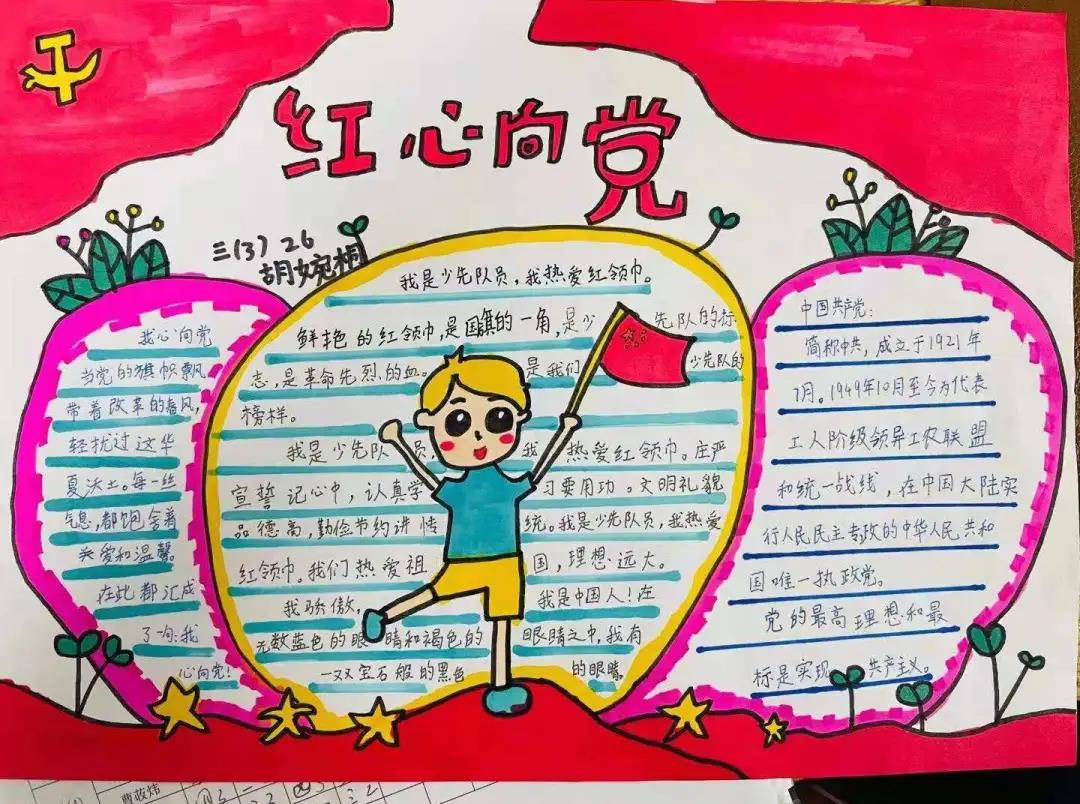 红心向党
三(3) 26
胡婉桐
我心向党
当党的旗帜飘
带着改革的春风,
轻扰过这华
夏沃土。每一丝
气息,都饱含着
关爱和温馨。
在此都汇成
了一句:我
心向党!
我是少先队员,我热爱红领巾。
鲜艳的红领巾,是国旗的一角,是少先队的标
志,是革命先烈的血。是我们少先队的
榜样。
我是少先队员我热爱红领巾。庄严
宣誓记心中,认真学习要用功。文明礼貌
品德高,勤俭节约讲传统。我是少先队员,我热爱
红领巾。我们热爱祖国,理想远大。
我骄傲,我是中国人!在
无数蓝色的眼睛和褐色的眼睛之中,我有
一双宝石般的黑色的眼睛。
中国共产党:
简称中共,成立于1921年
7月。1949年10月至今为代表
工人阶级领导工农联盟
和统一战线,在中国大陆实
行人民民主专政的中华人民共和
国唯一执政党。
党的最高理想和最
标是实现共产主义。